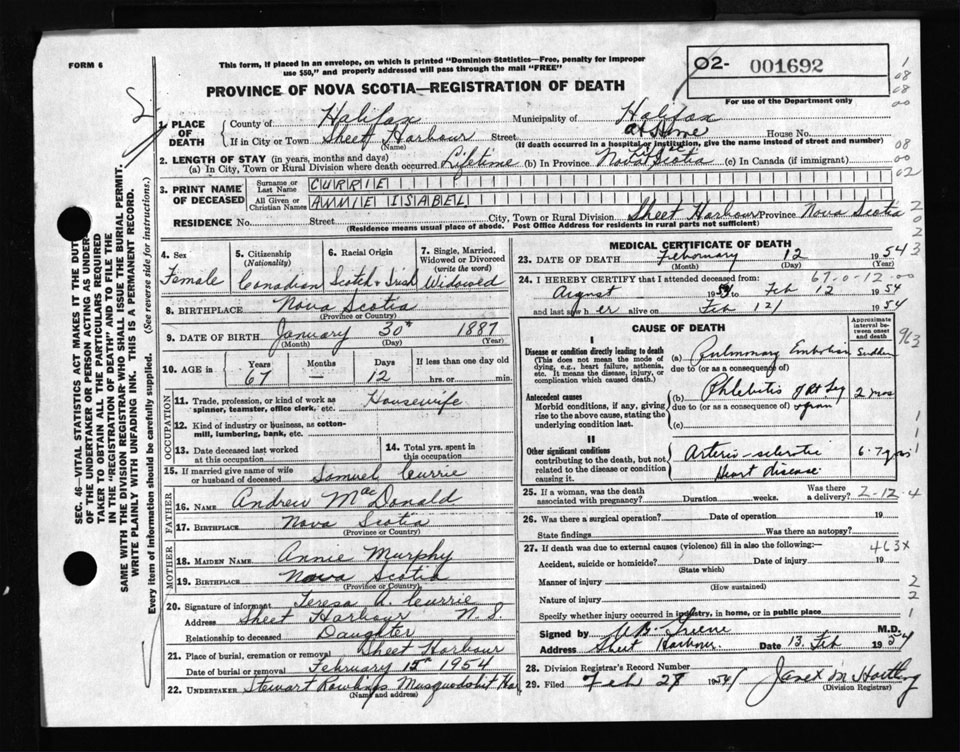 FORM 6
This form, if placed in an envelope, on which is printed "Dominion Statistics—Free, penalty for improper
use $50," and properly addressed will pass through the mail "FREE"
O2- 001692
For use of the Department only
PROVINCE OF NOVA SCOTIA—REGISTRATION OF DEATH
1. PLACE OF DEATH
County of Halifax Municipality of Halifax
If in City or Town Sheet Harbour Street at Home House No.
(Name) (If death occurred in a hospital or institution, give the name instead of street and number)
2. LENGTH OF STAY (in years, months and days)
(a) In City, Town or Rural Division where death occurred Lifetime (b) In Province Nova Scotia (c) In Canada (if immigrant)
3. PRINT NAME OF DECEASED
Surname or Last Name CURRIE
All Given or Christian Names ANNIE ISABEL
RESIDENCE No. Street City, Town or Rural Division Sheet Harbour Province Nova Scotia
(Residence means usual place of abode. Post Office Address for residents in rural parts not sufficient)
4. Sex Female
5. Citizenship (Nationality) Canadian
6. Racial Origin Scotch & Irish
7. Single, Married, Widowed or Divorced (write the word) Widowed
8. BIRTHPLACE Nova Scotia
(Province or Country)
9. DATE OF BIRTH January 30th 1887
(Month) (Day) (Year)
10. AGE in Years 67 Months — Days 12 If less than one day old hrs. or min.
OCCUPATION
11. Trade, profession, or kind of work as spinner, teamster, office clerk, etc. Housewife
12. Kind of industry or business, as cotton-mill, lumbering, bank, etc.
13. Date deceased last worked at this occupation
14. Total yrs. spent in this occupation
15. If married give name of wife or husband of deceased Samuel Currie
FATHER
16. Name Andrew MacDonald
17. Birthplace Nova Scotia
(Province or Country)
MOTHER
18. Maiden Name Annie Murphy
19. Birthplace Nova Scotia
(Province or Country)
20. Signature of informant Teresa A. Currie
Address Sheet Harbour N.S.
Relationship to deceased Daughter
21. Place of burial, cremation or removal Sheet Harbour
Date of burial or removal February 15th 1954
22. UNDERTAKER Stewart Rawlings Musquodoboit Har
(Name and address)
MEDICAL CERTIFICATE OF DEATH
23. DATE OF DEATH February 12 1954
(Month) (Day) (Year)
24. I HEREBY CERTIFY that I attended deceased from: 67-0-12
August 1953 to Feb 12 1954
and last saw her alive on Feb 12 1954
CAUSE OF DEATH
Approximate interval between onset and death
I
Disease or condition directly leading to death
(This does not mean the mode of dying, e.g., heart failure, asthenia, etc. It means the disease, injury, or complication which caused death.)
(a) Pulmonary Embolism Sudden
due to (or as a consequence of)
Antecedent causes
Morbid conditions, if any, giving rise to the above cause, stating the underlying condition last.
(b) Phlebitis of Rt Leg 2 mos
due to (or as a consequence of)
(c)
II
Other significant conditions
contributing to the death, but not related to the disease or condition causing it.
Arterio-sclerotic
Heart disease
6-7 yrs
25. If a woman, was the death associated with pregnancy? Duration weeks. Was there a delivery? 2-12-4
26. Was there a surgical operation? Date of operation 19
State findings Was there an autopsy?
27. If death was due to external causes (violence) fill in also the following:— 463x
Accident, suicide or homicide? Date of injury 19
(State which)
Manner of injury
(How sustained)
Nature of injury
Specify whether injury occurred in industry, in home, or in public place
Signed by M.D.
Address Sheet Harbour. Date 13 Feb 1954
28. Division Registrar's Record Number
29. Filed Feb 28 1954
(Division Registrar)
SEC. 46—VITAL STATISTICS ACT MAKES IT THE DUTY
OF THE UNDERTAKER OR PERSON ACTING AS UNDER-
TAKER TO OBTAIN ALL THE PARTICULARS REQUIRED
IN THE "REGISTRATION OF DEATH" AND TO FILE THE
SAME WITH THE DIVISION REGISTRAR WHO SHALL ISSUE THE BURIAL PERMIT.
WRITE PLAINLY WITH UNFADING INK. THIS IS A PERMANENT RECORD.
Every item of information should be carefully supplied. (See reverse side for instructions.)